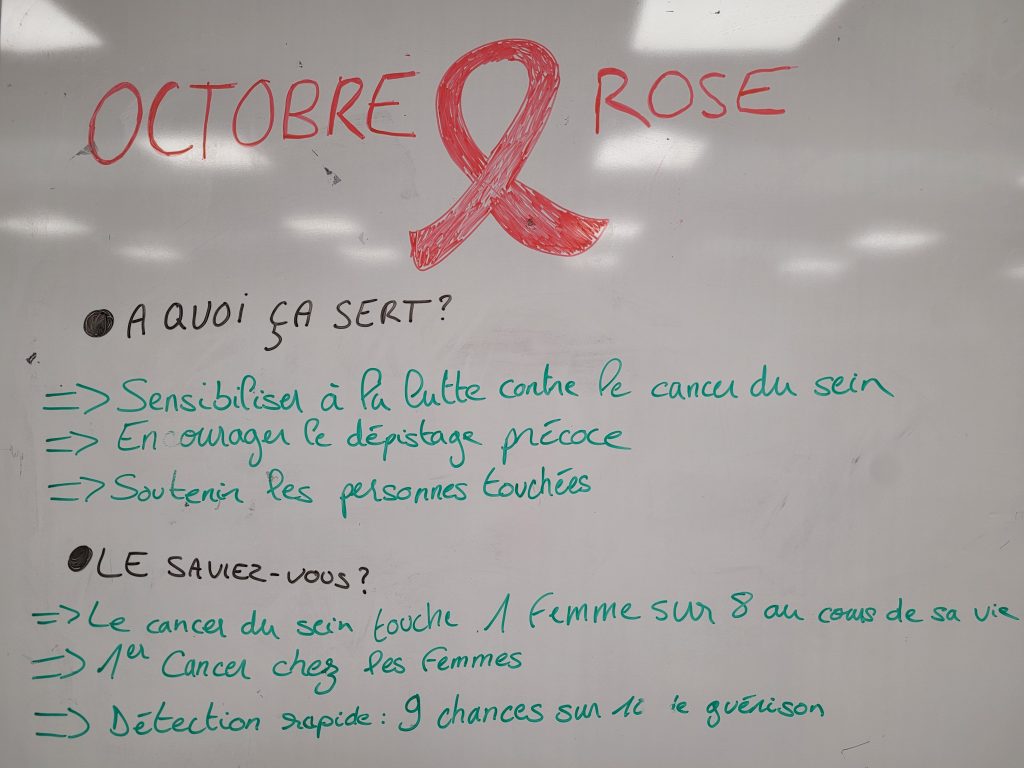 OCTOBRE ROSE
A QUOI ÇA SERT?
=> Sensibiliser à la lutte contre le cancer du sein
=> Encourager le dépistage précoce
=> Soutenir les personnes touchées
LE SAVIEZ-VOUS?
=> Le cancer du sein touche 1 femme sur 8 au cours de sa vie
=> 1er Cancer chez les femmes
=> Détection rapide: 9 chances sur guérison